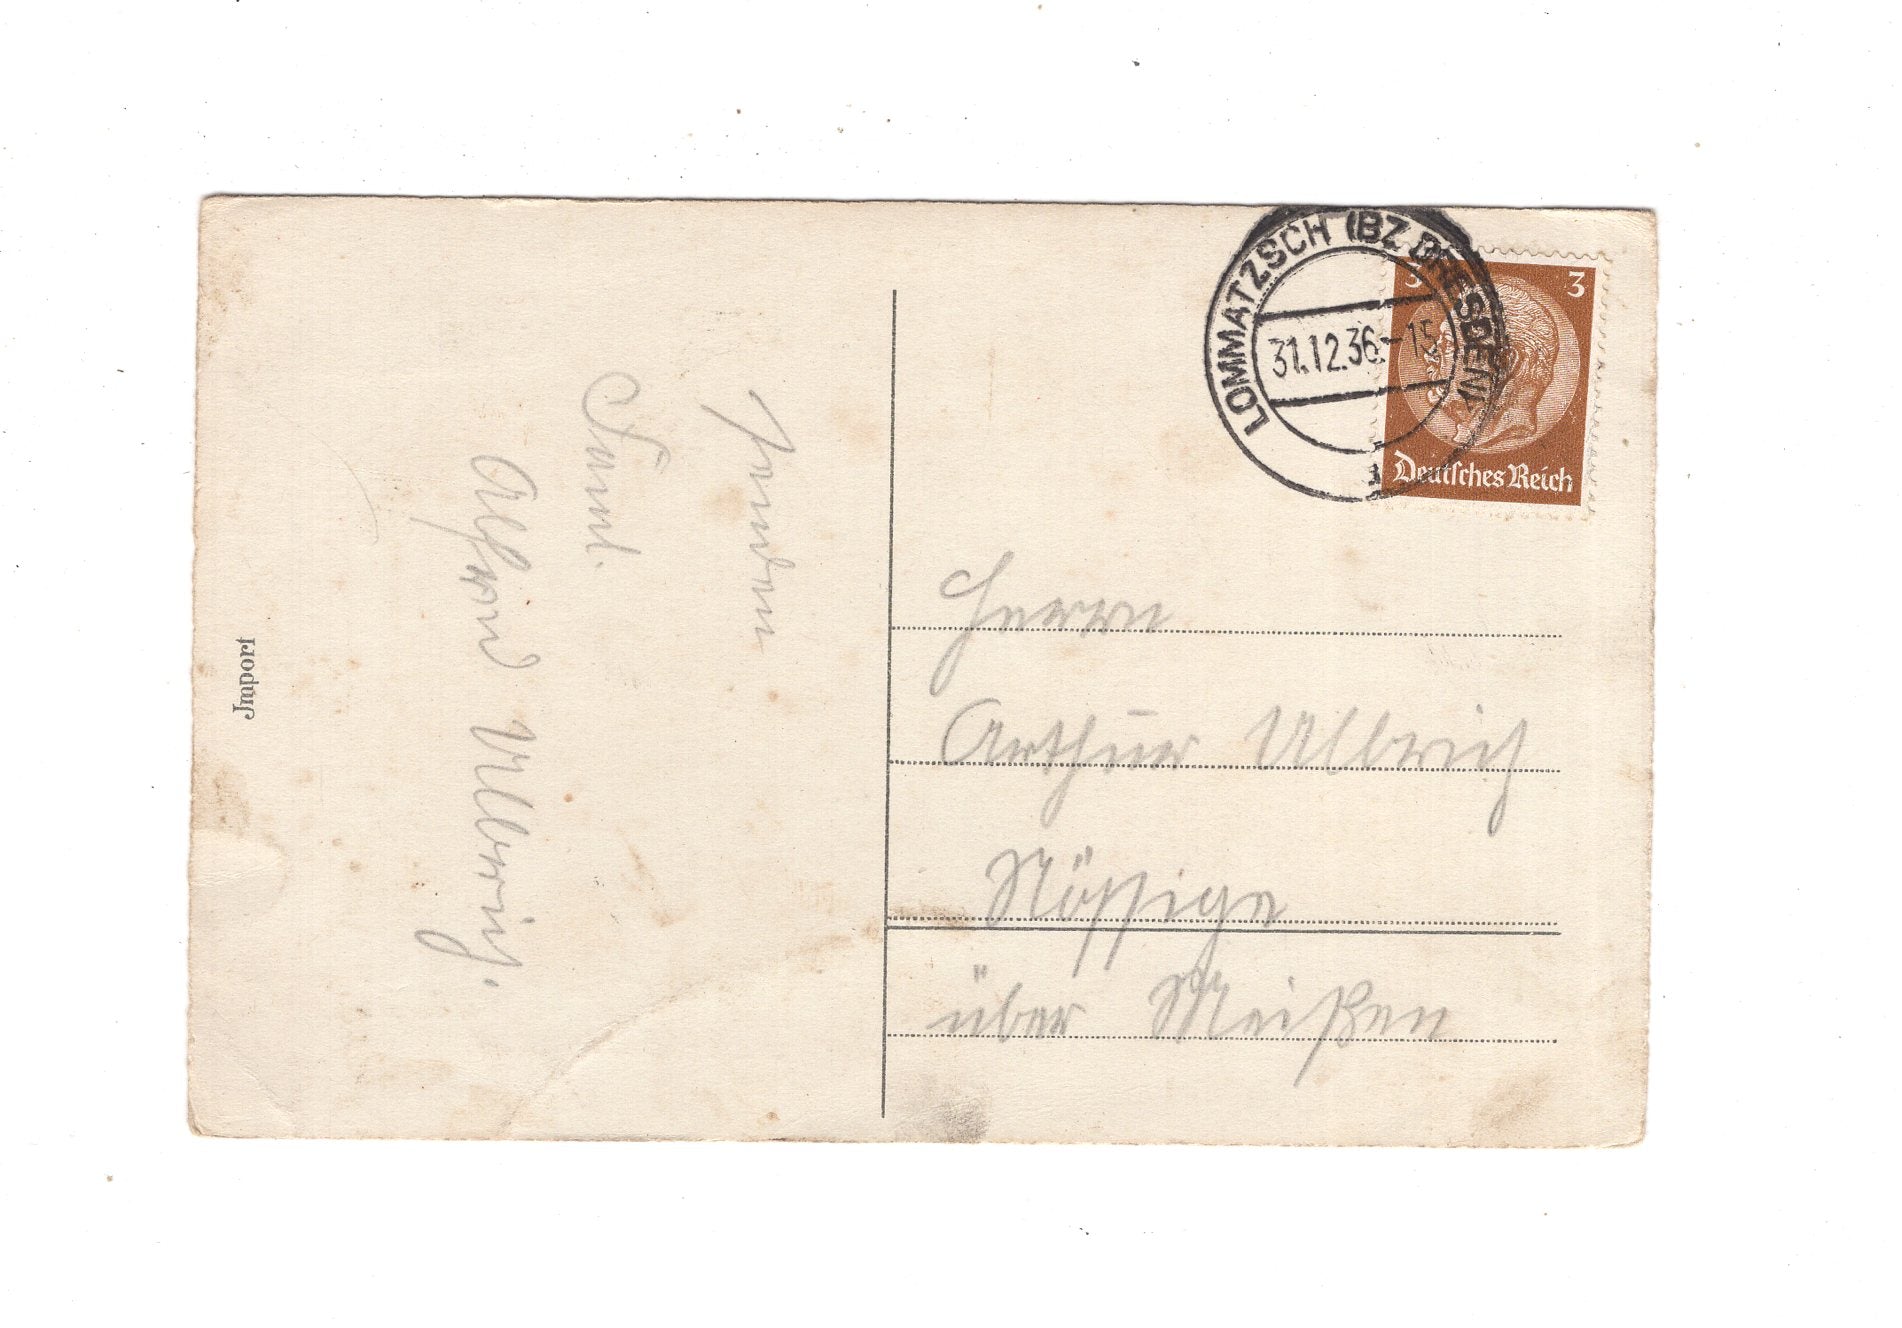 LOMMATZSCH (BZ DRESDEN)
31.12.36.-15
3 3
Deutsches Reich
Import
Alfred Ulbrich.
Herrn
Arthur Ulbrich
Nössige
über Meißen